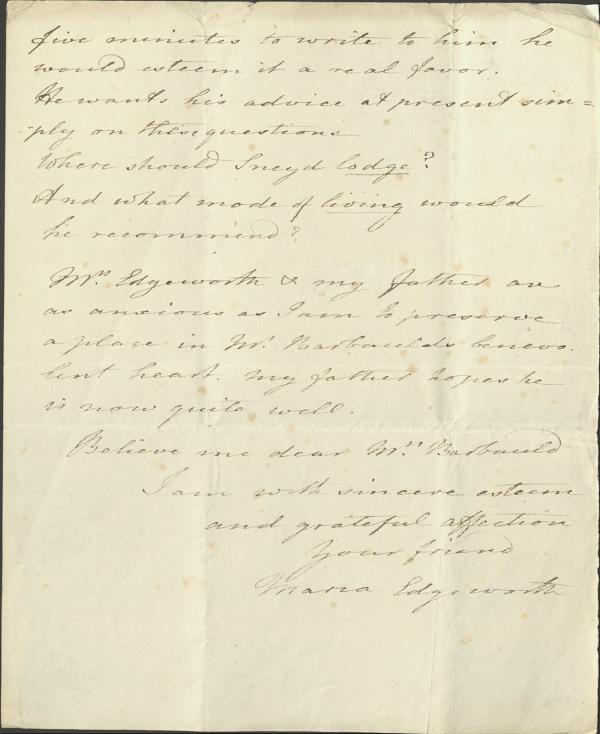 five minutes to write to him he
would esteem it a real favor.
He wants his advice at present sim=
-ply on these questions
Where should Sneyd lodge?
And what mode of living would
he recommend?
Mrs. Edgeworth & my father are
as anxious as I am to preserve
a place in Mr. Barbaulds benevo.
lent heart. My father hopes he
is now quite well.
Believe me dear Mrs. Barbauld
I am with sincere esteem
and grateful affection
Your friend
Maria Edgeworth